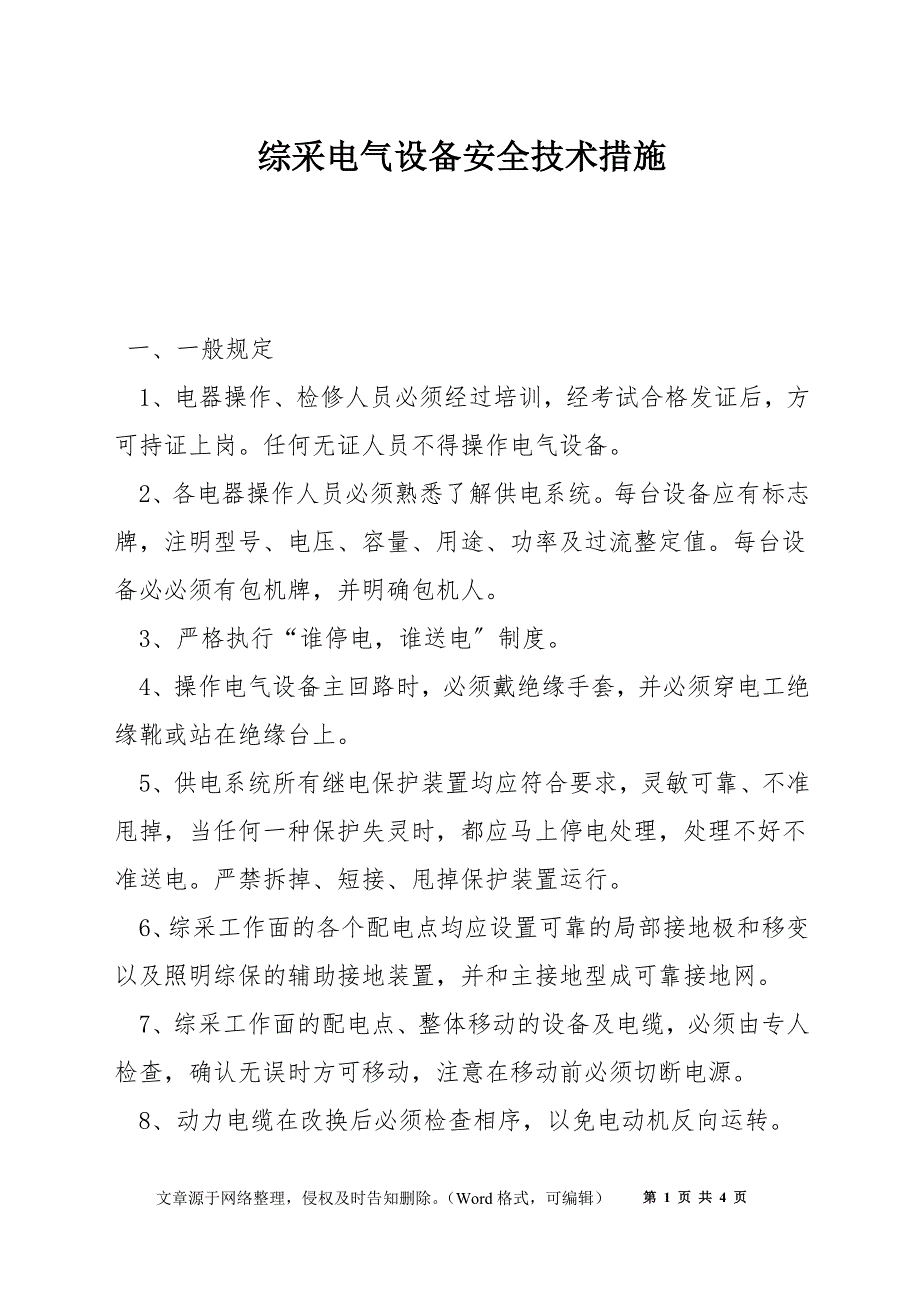 综采电气设备安全技术措施
一、一般规定
1、电器操作、检修人员必须经过培训，经考试合格发证后，方
可持证上岗。任何无证人员不得操作电气设备。
2、各电器操作人员必须熟悉了解供电系统。每台设备应有标志
牌，注明型号、电压、容量、用途、功率及过流整定值。每台设
备必必须有包机牌，并明确包机人。
3、严格执行“谁停电，谁送电〞制度。
4、操作电气设备主回路时，必须戴绝缘手套，并必须穿电工绝
缘靴或站在绝缘台上。
5、供电系统所有继电保护装置均应符合要求，灵敏可靠、不准
甩掉，当任何一种保护失灵时，都应马上停电处理，处理不好不
准送电。严禁拆掉、短接、甩掉保护装置运行。
6、综采工作面的各个配电点均应设置可靠的局部接地极和移变
以及照明综保的辅助接地装置，并和主接地型成可靠接地网。
7、综采工作面的配电点、整体移动的设备及电缆，必须由专人
检查，确认无误时方可移动，注意在移动前必须切断电源。
8、动力电缆在改换后必须检查相序，以免电动机反向运转。
文章源于网络整理，侵权及时告知删除。（Word 格式，可编辑） 第 1 页 共 4 页